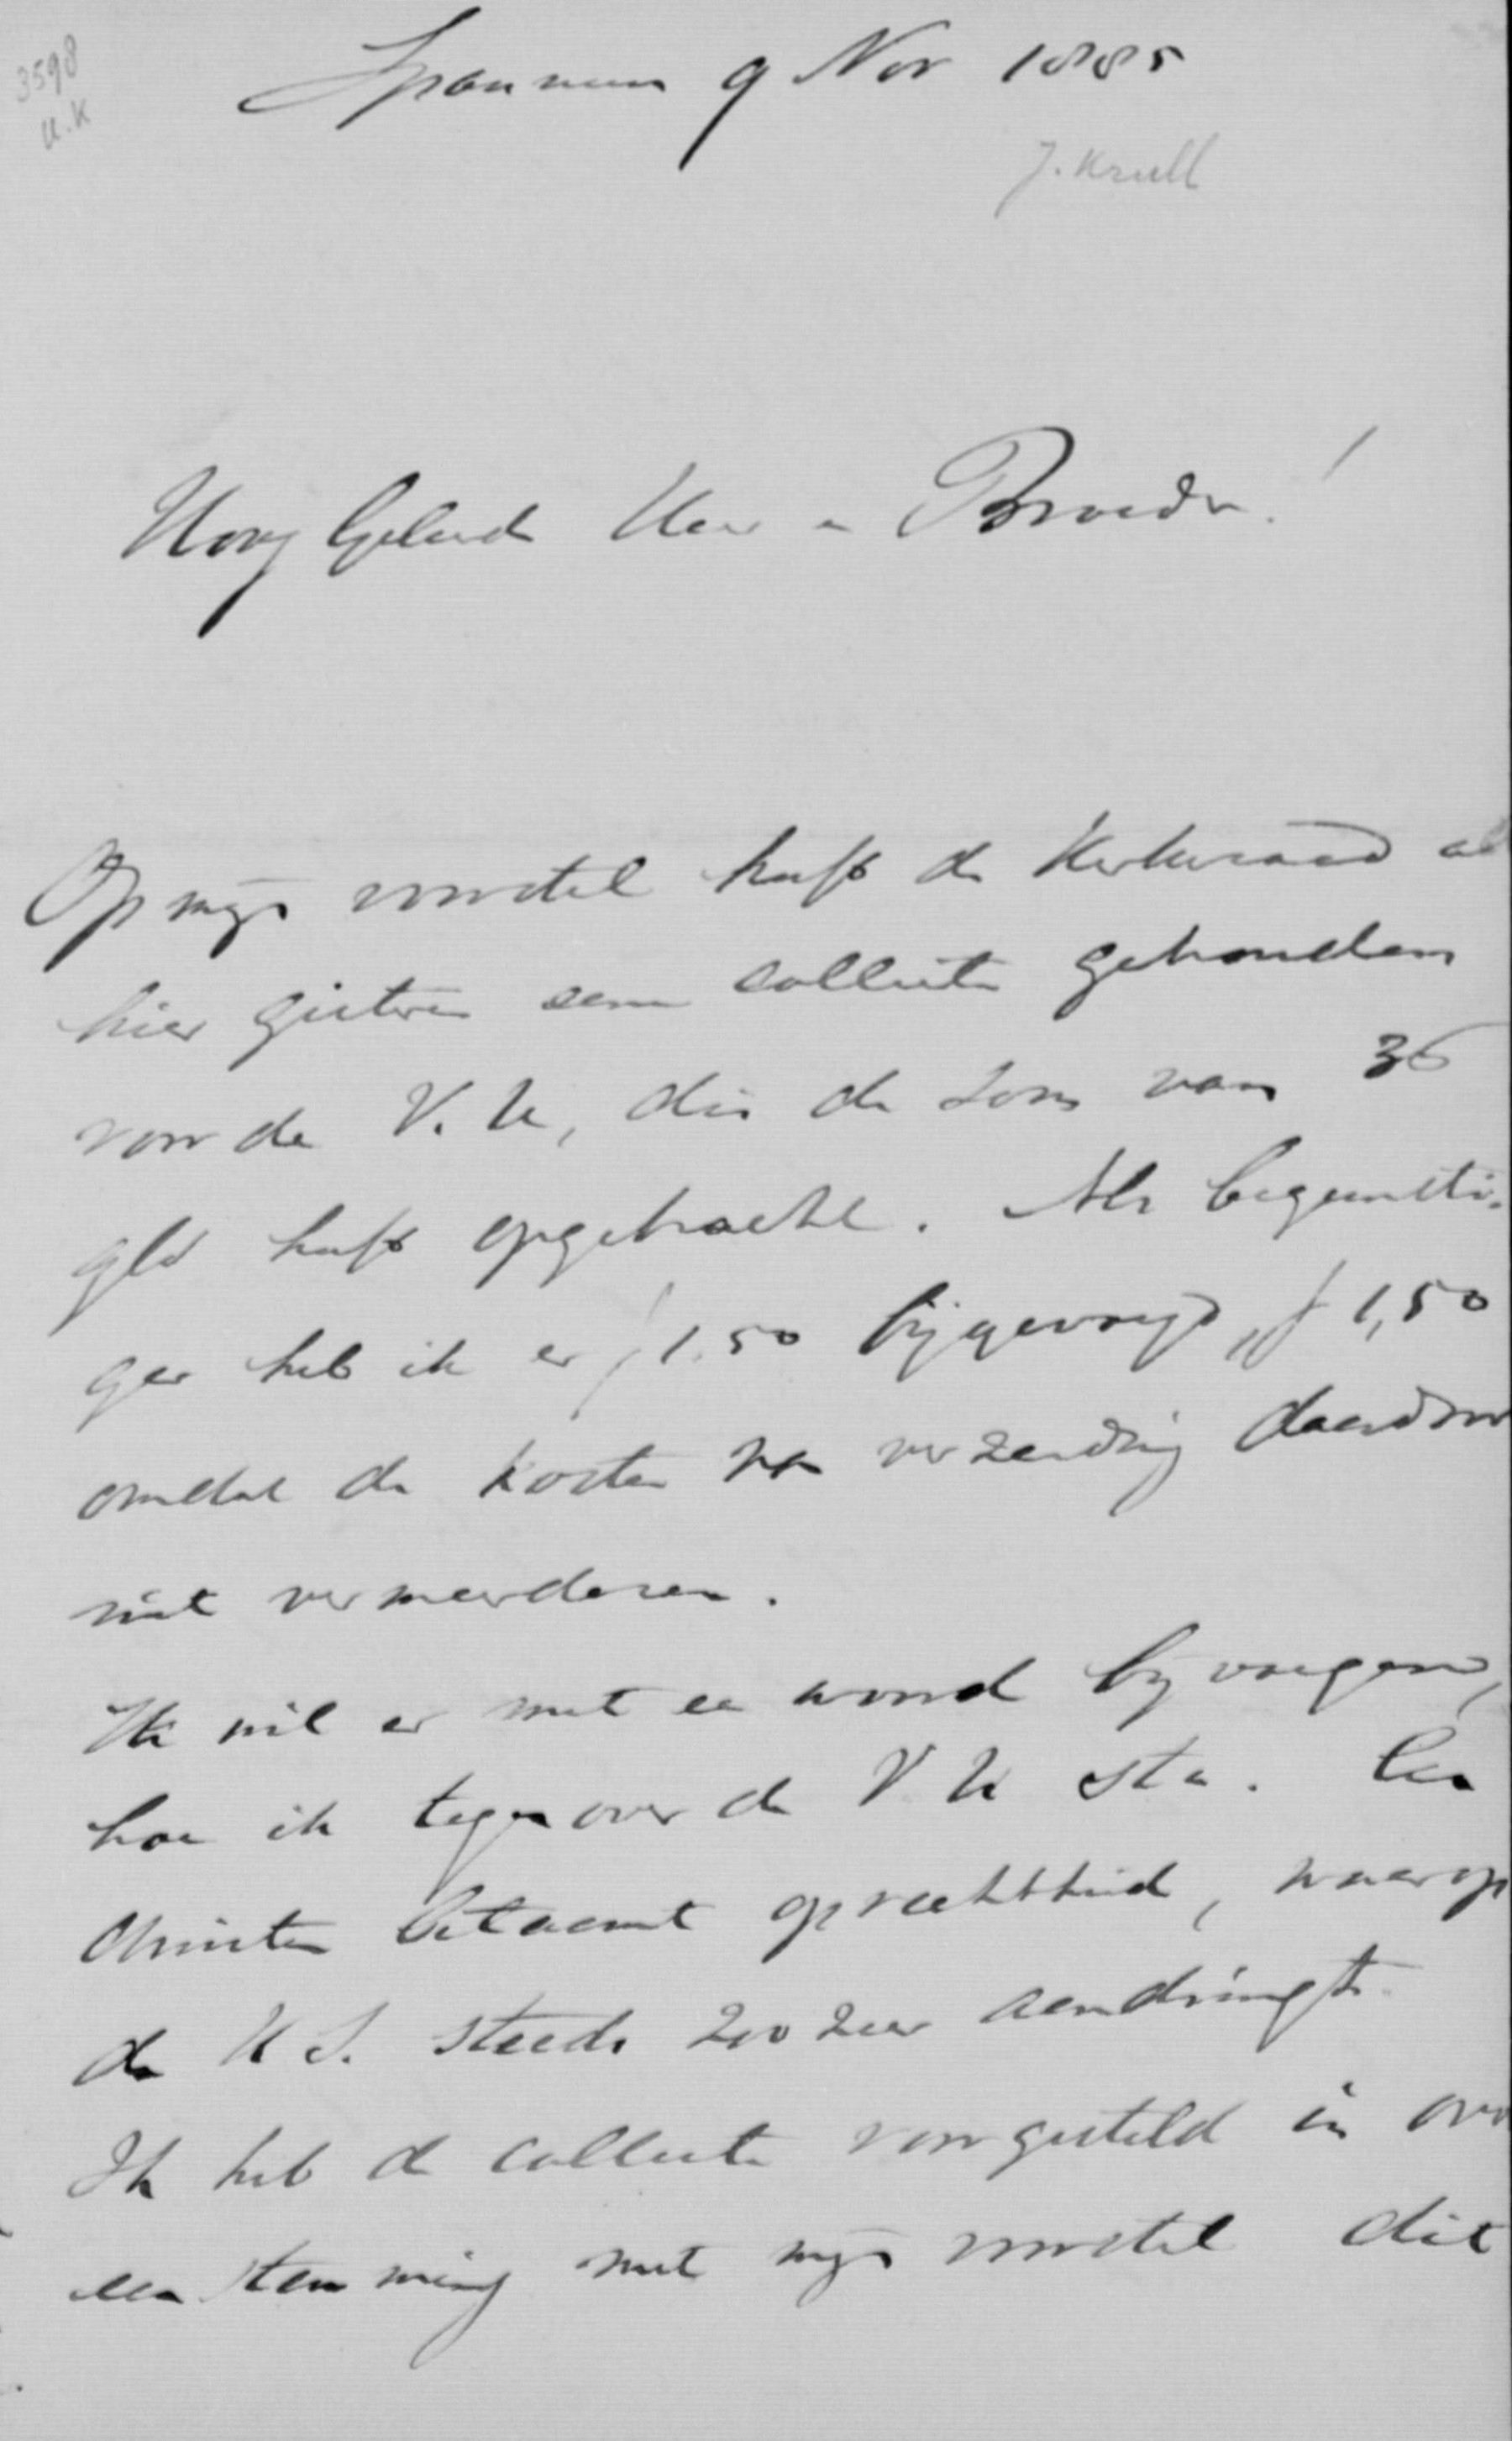 3598
U.K
Spannum 9 Nov 1885
J. Krull
Hoog Geleerde Heer en Broeder!
Op mijn voorstel heeft de Kerkeraad al
hier gisteren een collecte gehouden
voor de V. U, die de som van 36
gld heeft opgebracht. Als begunsti-
ger heb ik er f 1.50 bijgevoegd, f 1,50
omdat de kosten van verzending daardoor
niet vermeerderen.
Ik wil er met een woord bijvoegen,
hoe ik tegenover de V U sta. Een
Christen betaamt oprechtheid, waarop
de H S. steeds zoo zeer aandringt.
Ik heb de collecte voorgesteld in over
eenstemming met mijn voorstel dit